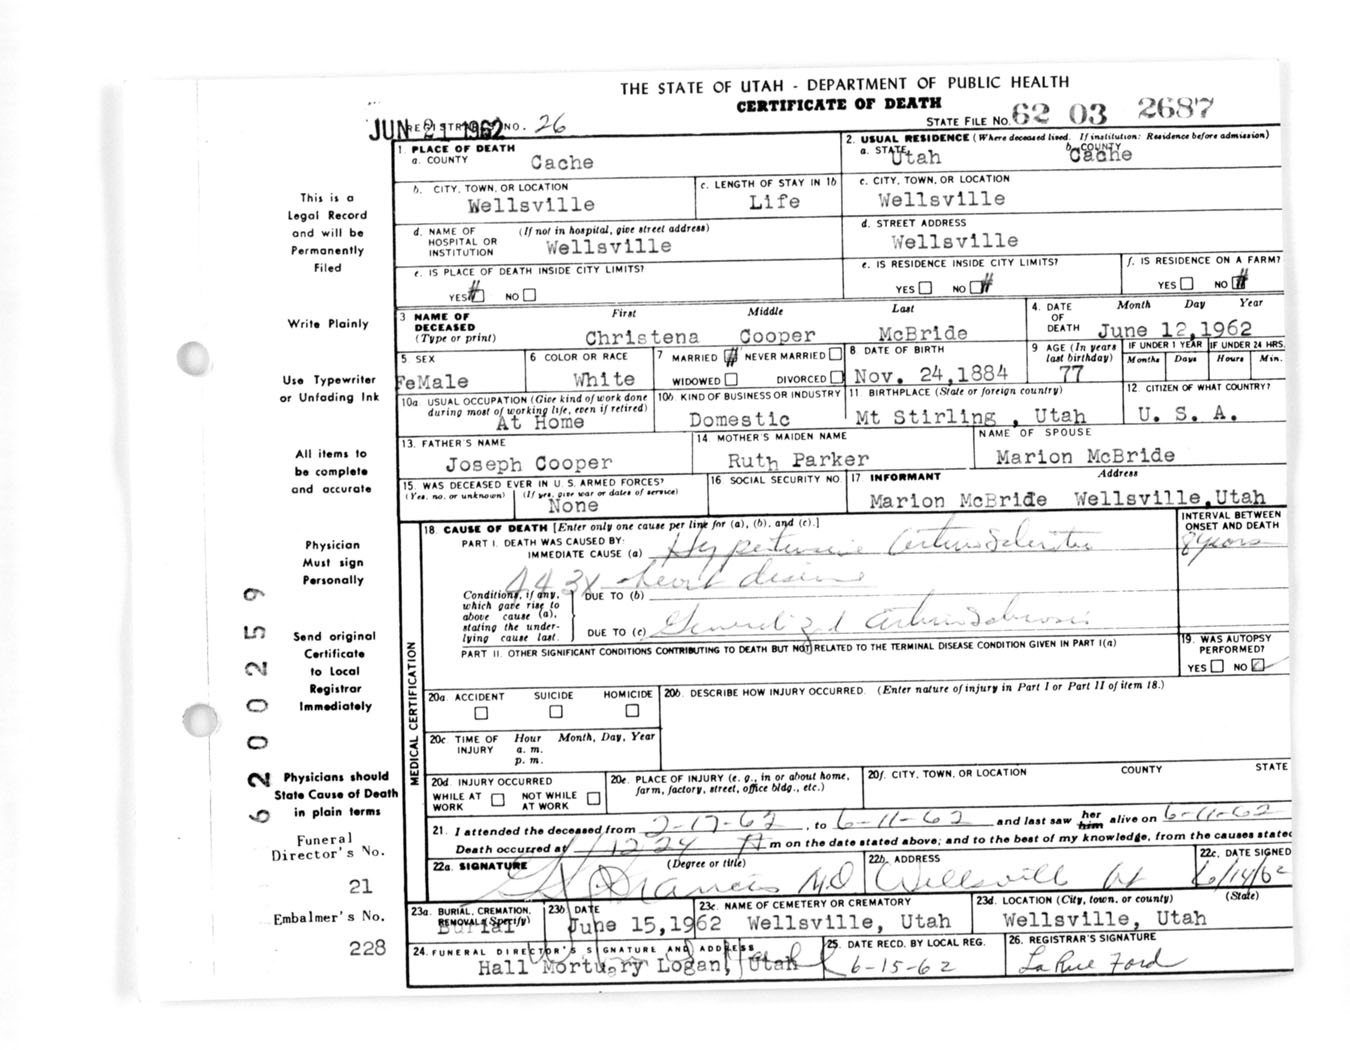 THE STATE OF UTAH - DEPARTMENT OF PUBLIC HEALTH
CERTIFICATE OF DEATH
STATE FILE NO. 62 03 2687
JUN 21 1962
REGISTRAR'S NO. 26
1. PLACE OF DEATH
a. COUNTY Cache
2. USUAL RESIDENCE (Where deceased lived. If institution: Residence before admission)
a. STATE Utah b. COUNTY Cache
b. CITY, TOWN, OR LOCATION Wellsville
c. LENGTH OF STAY IN 1b Life
c. CITY, TOWN, OR LOCATION Wellsville
d. NAME OF HOSPITAL OR INSTITUTION (If not in hospital, give street address) Wellsville
d. STREET ADDRESS Wellsville
e. IS PLACE OF DEATH INSIDE CITY LIMITS?
YES NO
e. IS RESIDENCE INSIDE CITY LIMITS?
YES NO
f. IS RESIDENCE ON A FARM?
YES NO
3 NAME OF DECEASED (Type or print) First Middle Last
Christena Cooper McBride
4. DATE OF DEATH Month Day Year
June 12,1962
5 SEX FeMale
6 COLOR OR RACE White
7 MARRIED NEVER MARRIED
WIDOWED DIVORCED
8 DATE OF BIRTH Nov. 24,1884
9 AGE (In years last birthday) 77
IF UNDER 1 YEAR Months Days
IF UNDER 24 HRS. Hours Min.
10a. USUAL OCCUPATION (Give kind of work done during most of working life, even if retired) At Home
10b. KIND OF BUSINESS OR INDUSTRY Domestic
11. BIRTHPLACE (State or foreign country) Mt Stirling , Utah
12. CITIZEN OF WHAT COUNTRY? U. S. A.
13. FATHER'S NAME Joseph Cooper
14. MOTHER'S MAIDEN NAME Ruth Parker
NAME OF SPOUSE Marion McBride
15. WAS DECEASED EVER IN U. S. ARMED FORCES? (Yes, no. or unknown) (If yes, give war or dates of service) None
16 SOCIAL SECURITY NO.
17 INFORMANT Address
Marion McBride Wellsville,Utah
18. CAUSE OF DEATH [Enter only one cause per line for (a), (b), and (c).]
INTERVAL BETWEEN ONSET AND DEATH
PART I. DEATH WAS CAUSED BY:
IMMEDIATE CAUSE (a) Hypertensive
8 years
443X heart disease
Conditions, if any, which gave rise to above cause (a), stating the underlying cause last.
DUE TO (b)
DUE TO (c) Generalized
PART II. OTHER SIGNIFICANT CONDITIONS CONTRIBUTING TO DEATH BUT NOT RELATED TO THE TERMINAL DISEASE CONDITION GIVEN IN PART I(a)
19. WAS AUTOPSY PERFORMED?
YES NO
MEDICAL CERTIFICATION
20a. ACCIDENT SUICIDE HOMICIDE
20b. DESCRIBE HOW INJURY OCCURRED. (Enter nature of injury in Part I or Part II of item 18.)
20c TIME OF INJURY Hour Month, Day, Year
a. m.
p. m.
20d. INJURY OCCURRED
WHILE AT WORK NOT WHILE AT WORK
20e. PLACE OF INJURY (e. g., in or about home, farm, factory, street, office bldg., etc.)
20f. CITY, TOWN, OR LOCATION COUNTY STATE
21. I attended the deceased from 2-17-62, to 6-11-62 and last saw her him alive on 6-11-62
Death occurred at 1224 A m on the date stated above; and to the best of my knowledge, from the causes stated
22a. SIGNATURE (Degree or title)
Francis M.D
22b. ADDRESS Wellsville Ut
22c. DATE SIGNED 6/14/62
23a. BURIAL, CREMATION, REMOVAL (Specify) Burial
23b DATE June 15,1962
23c. NAME OF CEMETERY OR CREMATORY Wellsville, Utah
23d. LOCATION (City, town, or county) (State) Wellsville, Utah
24. FUNERAL DIRECTOR'S SIGNATURE AND ADDRESS
Hall Mortuary Logan, Utah
25. DATE RECD. BY LOCAL REG. 6-15-62
26. REGISTRAR'S SIGNATURE LaRue Ford
This is a
Legal Record
and will be
Permanently
Filed
Write Plainly
Use Typewriter
or Unfading Ink
All items to
be complete
and accurate
Physician
Must sign
Personally
Send original
Certificate
to Local
Registrar
Immediately
Physicians should
State Cause of Death
in plain terms
Funeral
Director's No.
21
Embalmer's No.
228
6200259